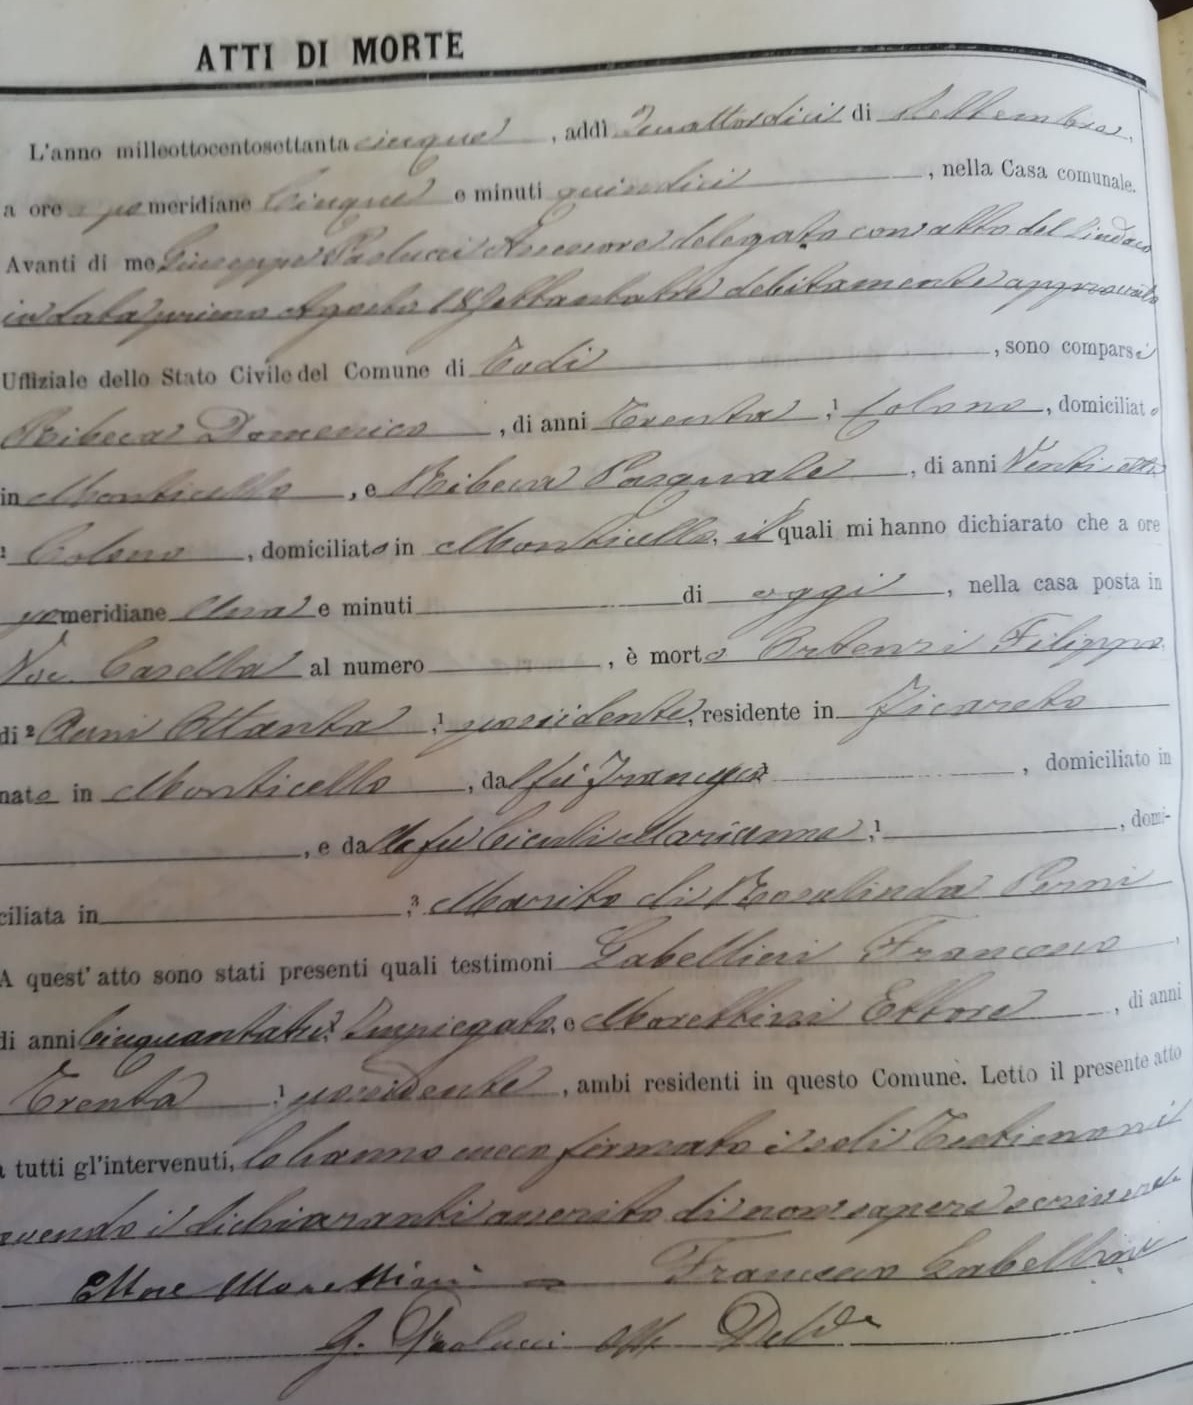 ATTI DI MORTE
L'anno milleottocentosettanta cinque, addì Quattordici di Settembre,
a ore pomeridiane Cinque e minuti quindici, nella Casa comunale.
Avanti di me Giuseppe Paolucci Assessore delegato con atto del Sindaco
in data primo Agosto 18settantatre debitamente approvato
Uffiziale dello Stato Civile del Comune di Todi, sono comparsi
Ribeca Domenico, di anni Trenta, ¹ Colono, domiciliato
in Monticello, e Ribeca Pasquale, di anni Ventiotto
¹ Colono, domiciliato in Monticello, i quali mi hanno dichiarato che a ore
pomeridiane Una e minuti di oggi, nella casa posta in
Voc. Casella al numero, è morto Ortensi Filippo
di ² Anni Ottanta, ¹ possidente, residente in Ficareto
nato in Monticello, dal fù Francesco, domiciliato in
, e dalla fu Marianna, ¹, domi-
ciliata in ³ Marito di Rosalinda Perni
A quest' atto sono stati presenti quali testimoni Gabellieri Francesco,
di anni Cinquantatre, ¹ Impiegato, e Morettini Ettore, di anni
Trenta ¹ possidente, ambi residenti in questo Comune. Letto il presente atto
a tutti gl'intervenuti, lo hanno meco firmato i soli Testimoni
avendo i dichiaranti asserito di non sapere scrivere
Ettore Morettini Francesco Gabellieri
G. Paolucci Delto